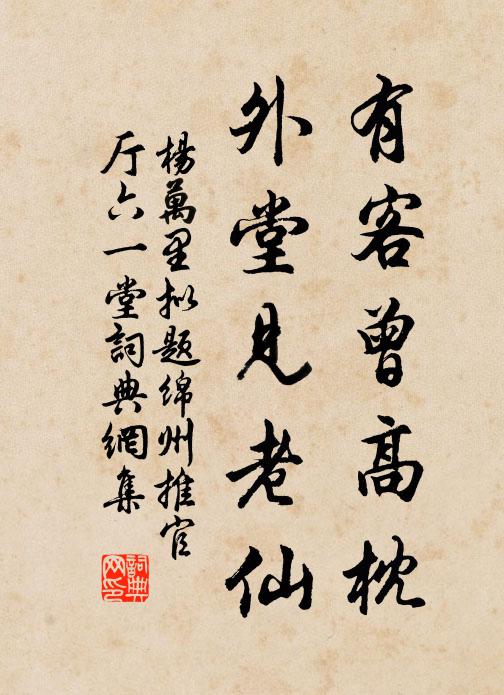 有客曾高枕
外堂見老仙
楊萬里拟题绵州推官
厅六一堂詞典網集
詞典
网印